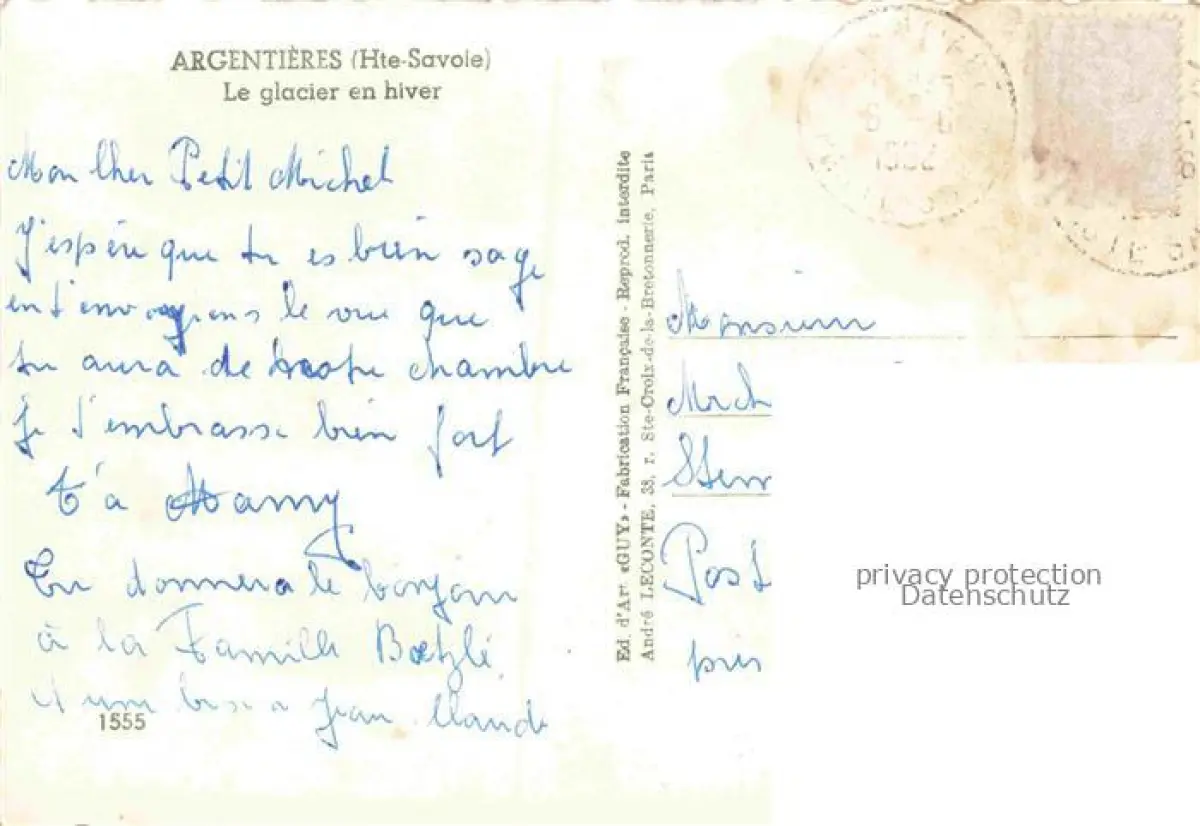 ARGENTIÈRES (Hte-Savoie)
Le glacier en hiver
Mon Cher Petit Michel
J'espère que tu es bien sage
en t'envoyens le vue que
tu aura de chambre
Je t'embrasse bien fort
t'a Mamy
Tu donnera le bonjour
à la Famille Bætzlé
et un bise a Jean Claude
1555
Ed. d'Art «GUY» - Fabrication Française - Reprod. interdite
André LECONTE, 38, r. Ste-Croix-de-la-Bretonnerie, Paris
Monsieur
Mich
Post
près
privacy protection
Datenschutz